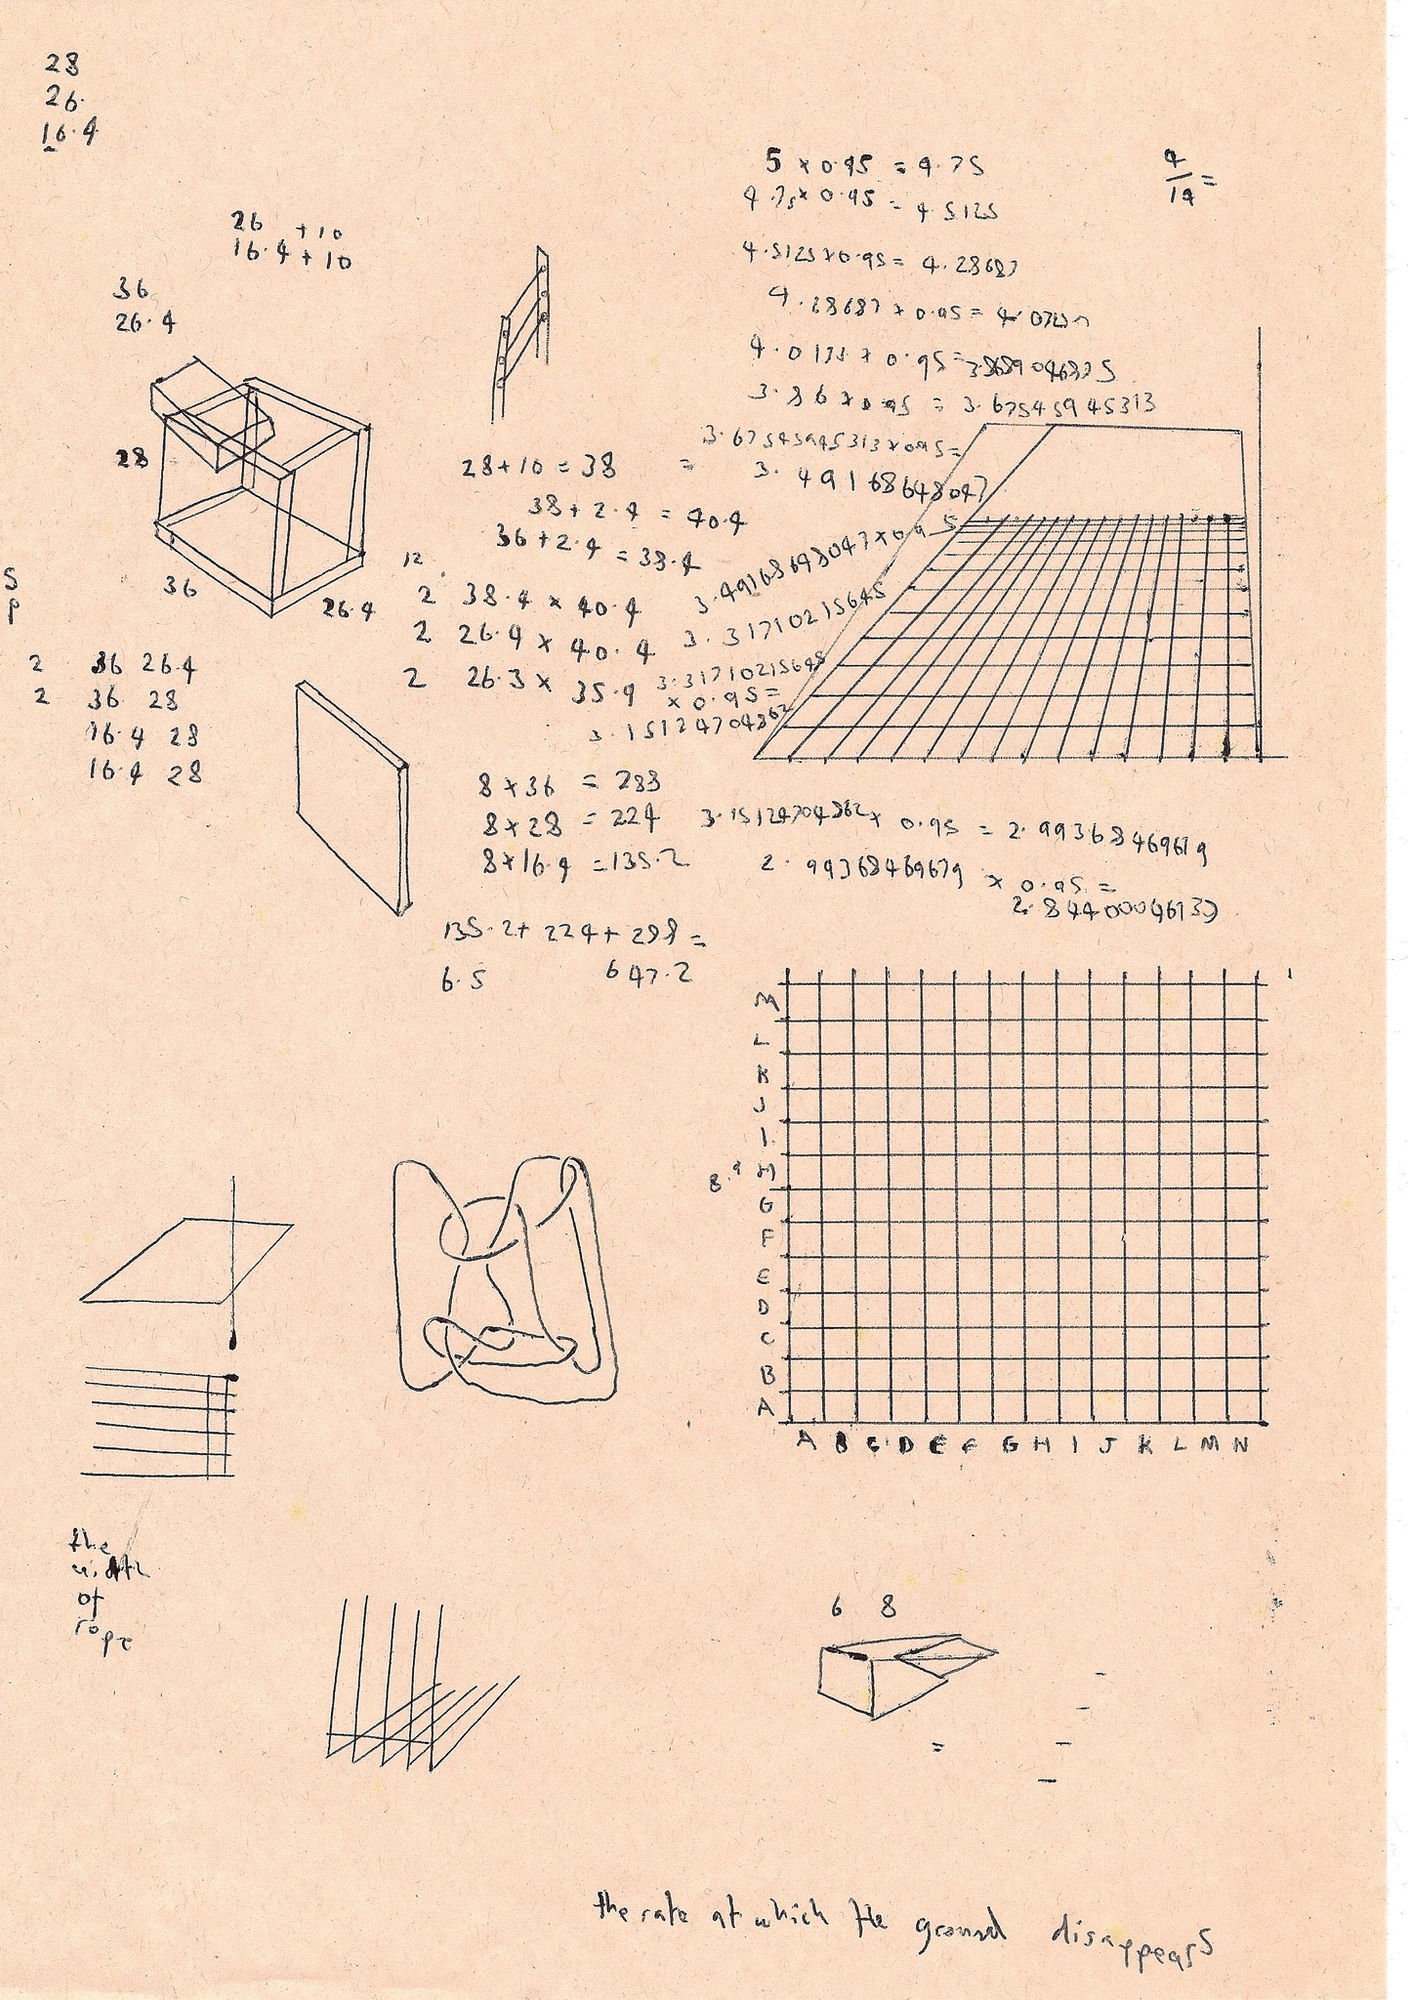 28
26.
16.4
26 +10
16.4 + 10
36
26.4
28
36
26.4
S
P
2 36 26.4
2 36 28
16.4 28
16.4 28
28+10 = 38
38+2.4 = 40.4
36+2.4 = 38.4
12
2 38.4 × 40.4
2 26.4 × 40.4
2 26.3 × 35.9
8×36 = 288
8×28 = 224
8×16.4 = 135.2
135.2+ 224+ 288 =
6.5 647.2
5 × 0.95 = 4.75
4.75× 0.95 = 4.5125
4.5125×0.95= 4.28687
4.28687 × 0.95 =
× 0.95=
3.86 × 0.95 = 3.67545945313
3.67545945313×0.95=
= 3.49168648047
3.49168648047×0.95
3.31710215645
3.31710215645
× 0.95=
3.15124704862
3.15124704862× 0.95 = 2.99368469619
2.99368469679 × 0.95 =
4
14 =
M
L
K
J
I
H
G
F
E
D
C
B
A
8.9
A B C D E F G H I J K L M N
the
width
of
rope
6 8
=
the rate at which the ground disappears